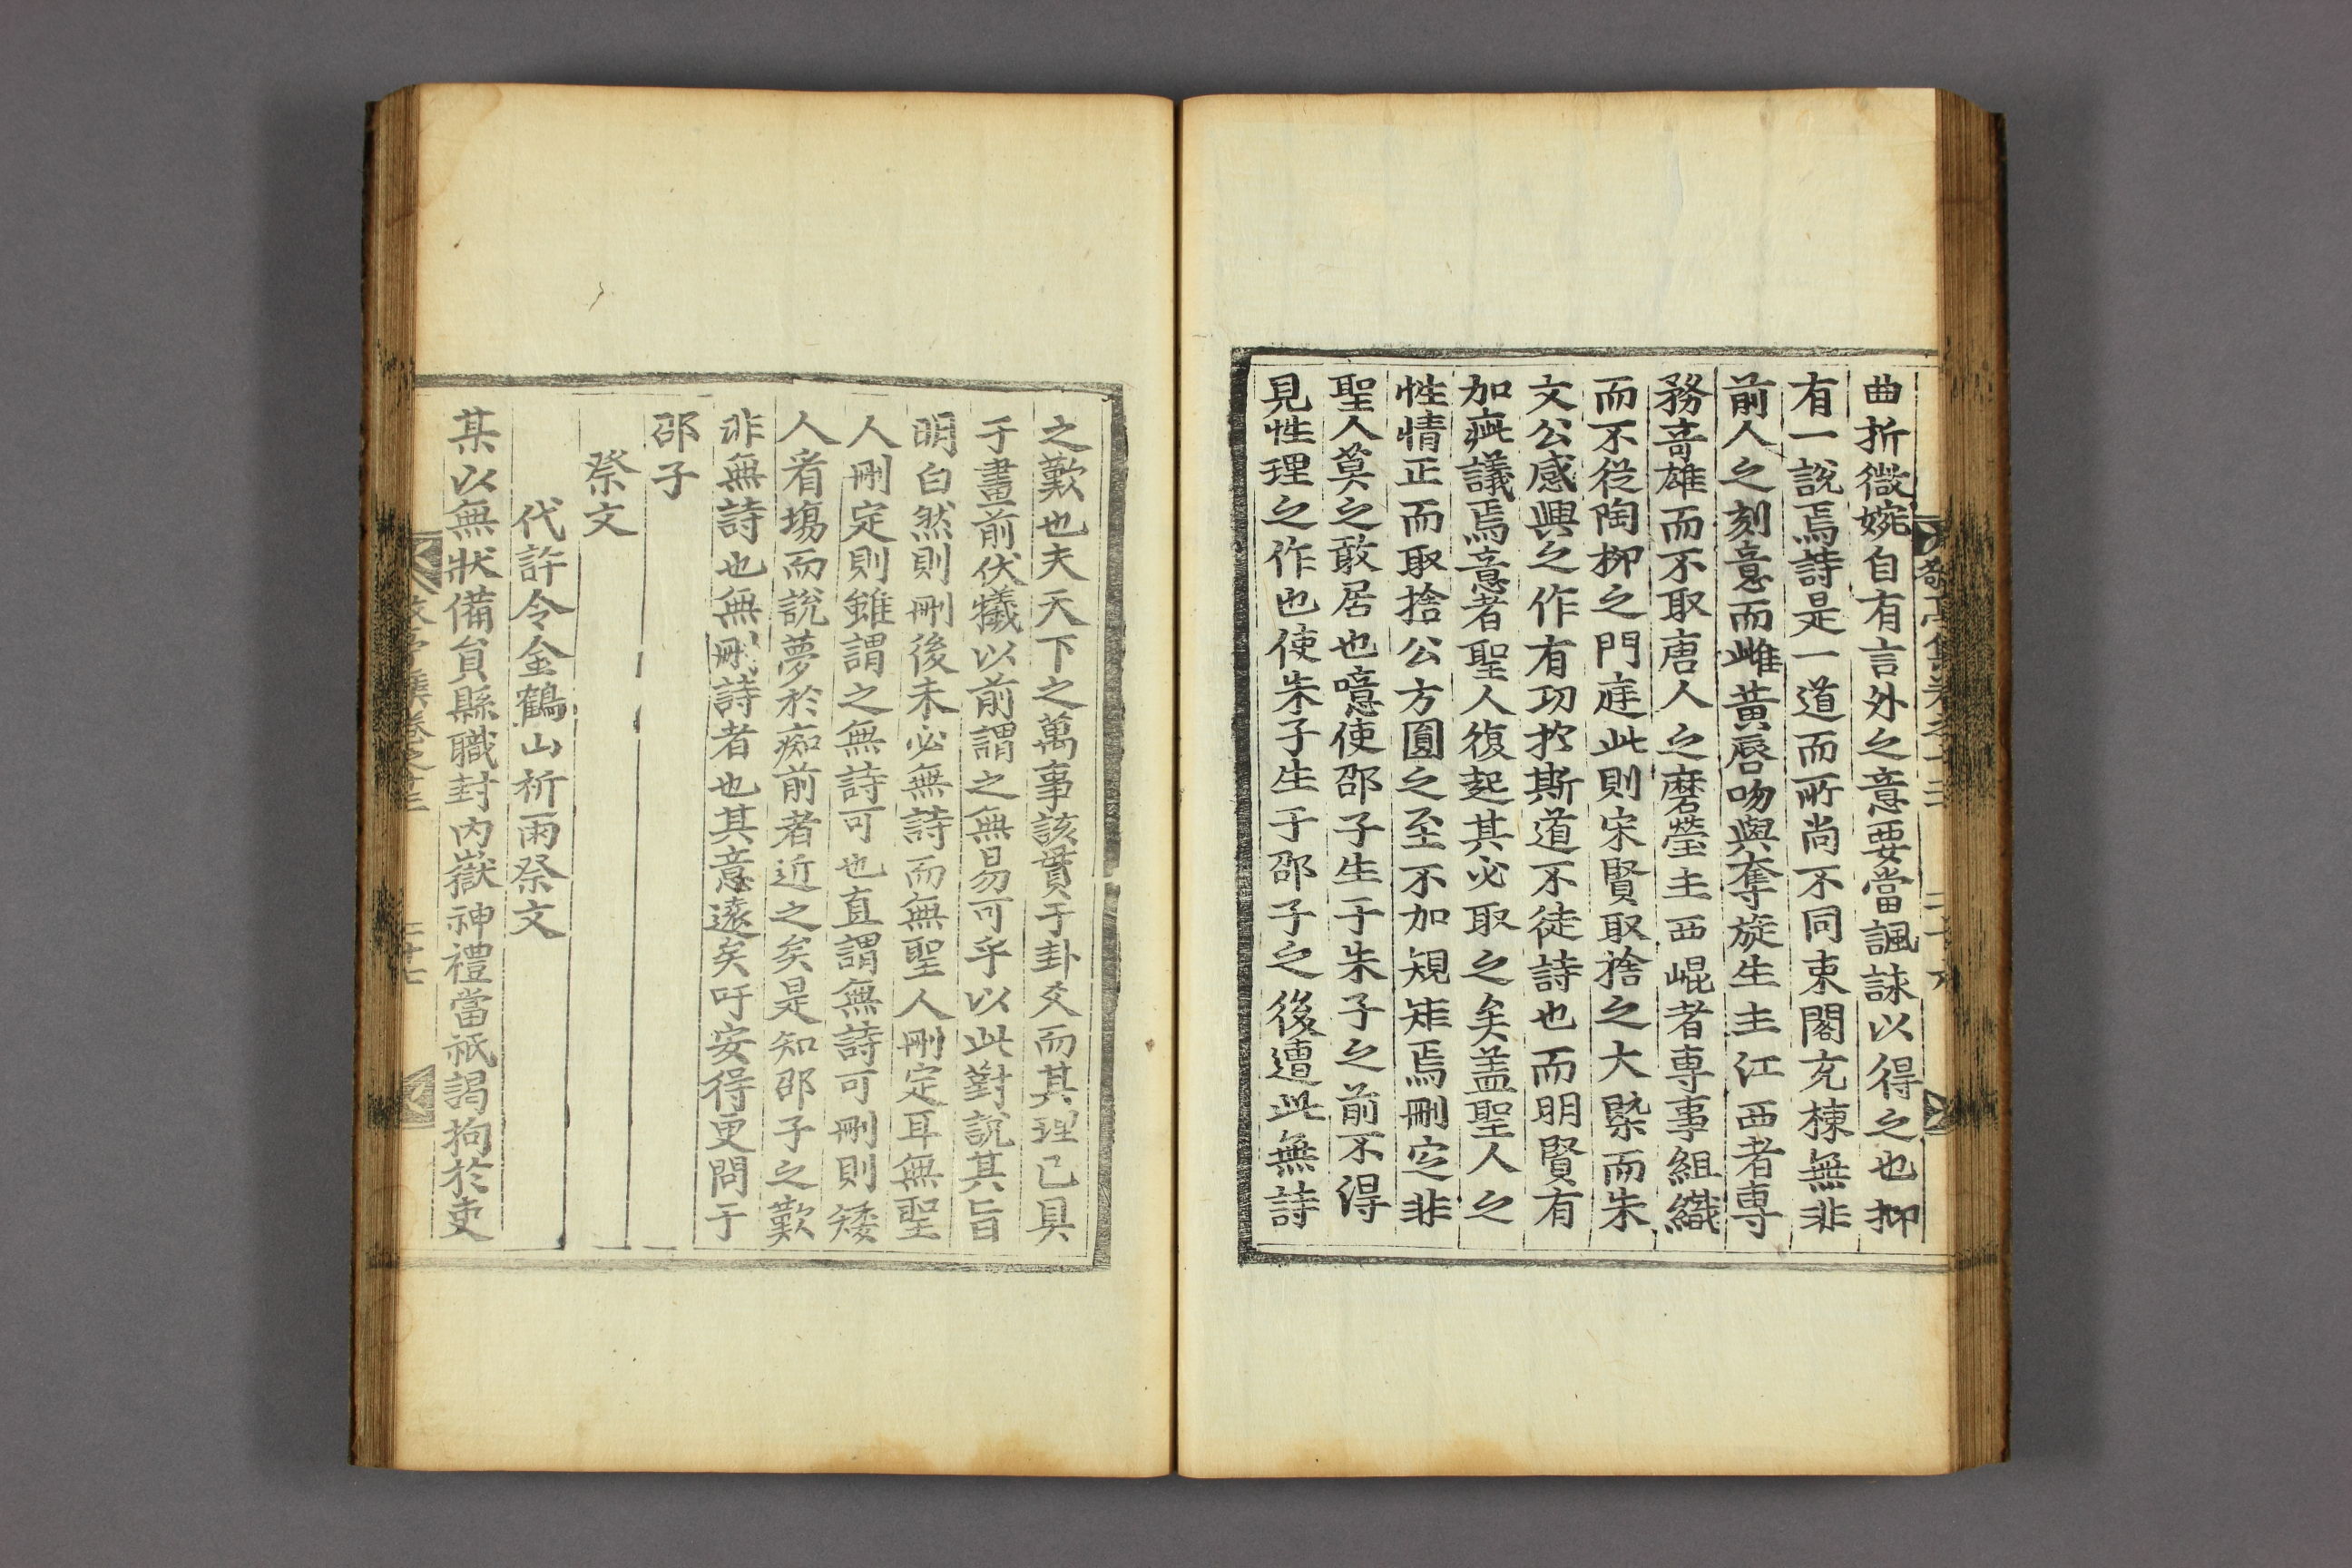 曲折微婉自有言外之意要當諷詠以得之也抑
有一說焉詩是一道而所尚不同束閣充棟無非
前人之刻意而雌黃唇吻與奪旋生主江西者專
務奇雄而不取唐人之磨瑩主西崐者專事組織
而不從陶柳之門庭此則宋賢取捨之大槩而朱
文公感興之作有功於斯道不徒詩也而明賢有
加疵議焉意者聖人復起其必取之矣盖聖人之
性情正而取捨公方圓之至不加規矩焉刪定非
聖人莫之敢居也噫使邵子生于朱子之前不得
見性理之作也使朱子生于邵子之後遭此無詩
之歎也夫天下之萬事該貫于卦爻而其理已具
于畫前伏犧以前謂之無易可乎以此對說其旨
明白然則刪後未必無詩而無聖人刪定耳無聖
人刪定則雖謂之無詩可也直謂無詩可刪則矮
人看場而說夢於痴前者近之矣是知邵子之歎
非無詩也無刪詩者也其意遠矣吁安得更問于
邵子
祭文
代許令金鶴山祈雨祭文
某以無狀備負縣職封內嶽神禮當祇謁拘於吏